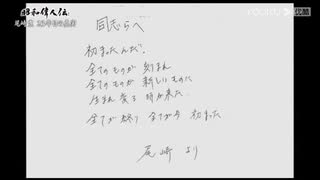 昭和偉人伝
尾崎豊
YOUKU
同志らへ
初まったんだ。
全てのものが
全てのものが 新しいものに
生まれ変る 時が来た
全てが終り 全てが今 初まった
尾崎 より